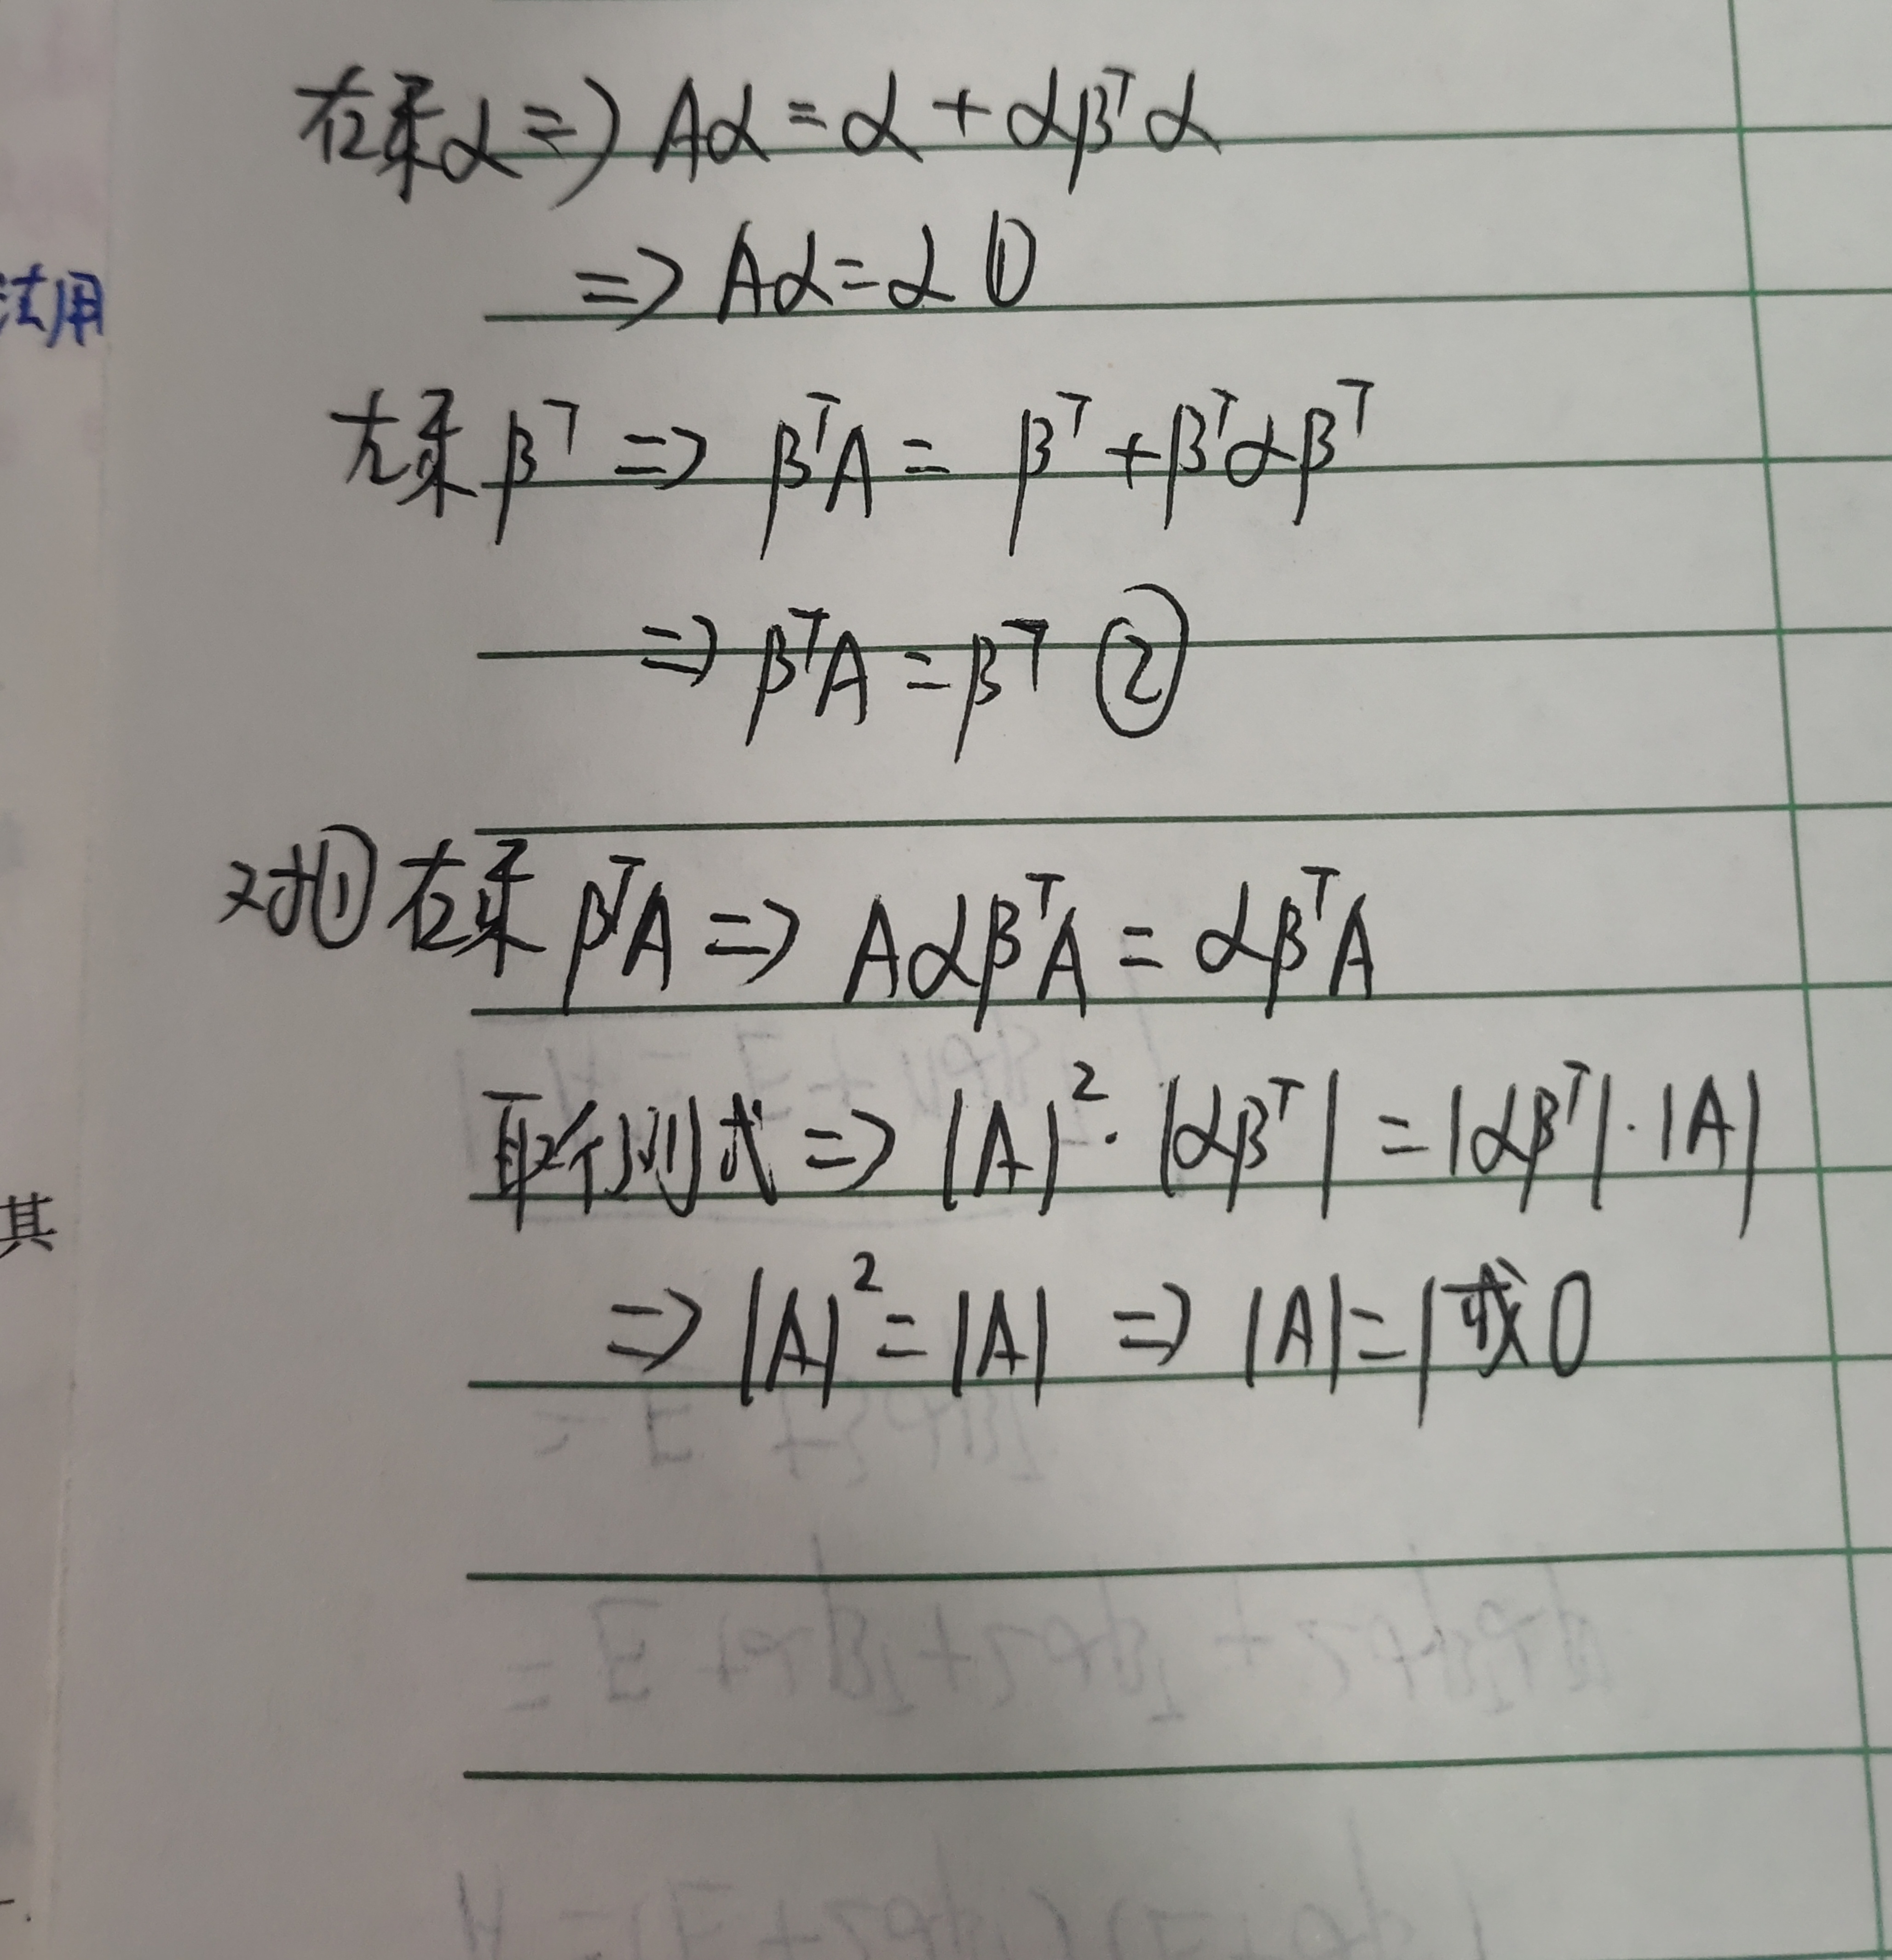 右乘α => Aα = α + αβᵀα
=> Aα = α ①
法用
左乘 βᵀ => βᵀA = βᵀ + βᵀαβᵀ
=> βᵀA = βᵀ ②
对① 右乘 βᵀA => Aαβᵀ A = αβᵀA
取行列式 => |A|²·|αβᵀ| = |αβᵀ|·|A|
其
=> |A|² = |A| => |A| = 1或0